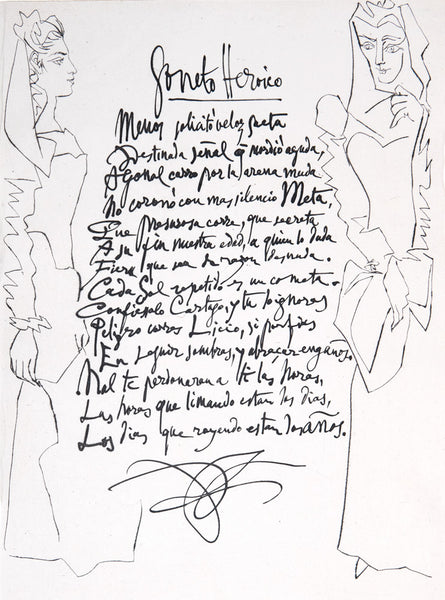 Soneto Heroico
Menos solicitó veloz saeta
Destinada señal q̃ mordió aguda,
Agonal carro por la arena muda
No coronó con mas silencio Meta,
Que presurosa corre, que secreta
A su fin nuestra edad, a quien lo duda
Fiera que sea de razon desnuda.
Cada Sol repetido es un cometa.
Confiesalo Cartago, y tu lo ignoras
Peligro corres Licio, si porfias
En seguir sombras, y abraçar engaños
Mal te perdonaran a ti las horas,
Las horas que limando estan los dias,
Los dias que royendo estan los años.